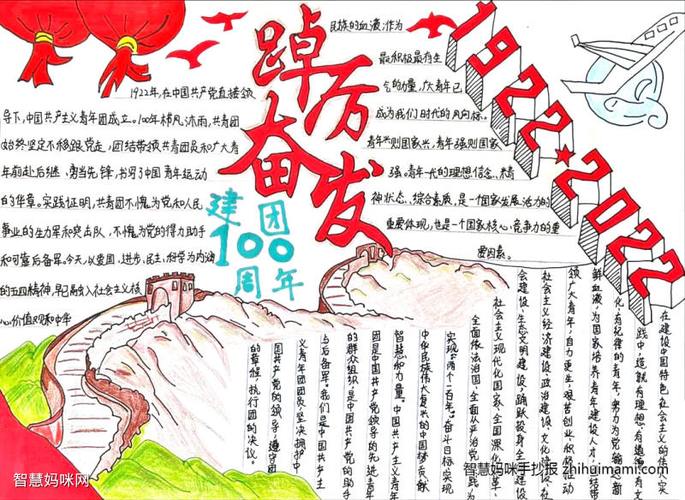 踔厉奋发
建团
100
周年
1922★2022
1922年,在中国共产党直接领
导下,中国共产主义青年团成立。100年栉风沐雨,共青团
始终坚定不移跟党走,团结带领共青团员和广大青
年前赴后继、勇当先锋,书写了中国青年运动
的华章。实践证明,共青团不愧为党和人民
事业的生力军和突击队,不愧为党的得力助手
和可靠后备军。今天,以爱国、进步、民主、科学为内涵
的五四精神,早已融入社会主义核
心价值观和中华
民族的血液;作为
最积极最有生
气的力量,广大青年已
成为我们时代的风向标。
青年兴则国家兴,青年强则国家
强。青年一代的理想信念、精
神状态、综合素质,是一个国家发展活力的
重要体现,也是一个国家核心竞争力的重
要因素。
在建设中国特色社会主义的伟大实
践中,造就有理想、有道德、有文
化、有纪律的青年,努力为党输送新
鲜血液,为国家培养青年建设人才,团结带
领广大青年,自力更生,艰苦创业,积极推动
社会主义经济建设、政治建设、文化建设、社
会建设、生态文明建设,踊跃投身全面建设
社会主义现代化国家、全面深化改革、
全面依法治国、全面从严治党
实现“两个一百年”奋斗目标、实现
中华民族伟大复兴的中国梦贡献
智慧和力量。中国共产主义青年
团是中国共产党领导的先进青年
的群众组织,是中国共产党的助手
与后备军。我们是中国共产主
义青年团团员,坚决拥护中
国共产党的领导,遵守团
的章程,执行团的决议。
智慧妈咪网
智慧妈咪手抄报 zhihuimami.com